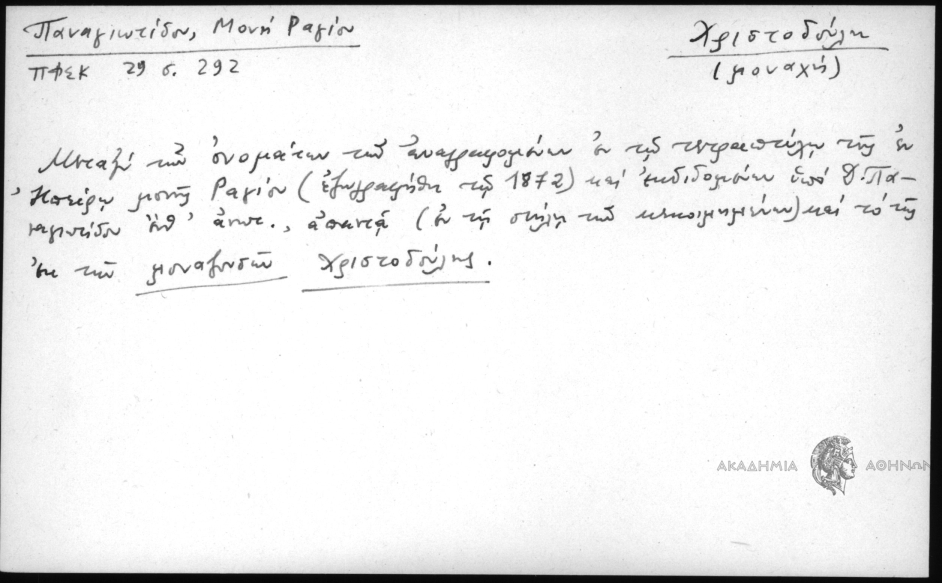 Παναγιωτίδου, Μονή Ραγίου
ΠΦΣΚ 29 σ. 292
Χριστοδούλη
(μοναχή)
Μεταξὺ τῶν ὀνομάτων τῶν ἀναγραφομένων ἐν τῷ τετραπτύχῳ τῆς ἐν
Ἠπείρῳ μονῆς Ραγίου (ἐζωγραφήθη τῷ 1872) καὶ ἐκδιδομένων ὑπὸ Δ. Πα-
ναγιωτίδου ἔνθ' ἀνωτ., ἀπαντᾷ (ἐν τῇ στήλῃ τῶν κεκοιμημένων) καὶ τὸ τῆς
ἐκ τῶν μοναζουσῶν Χριστοδούλης.
ΑΚΑΔΗΜΙΑ ΑΘΗΝΩΝ